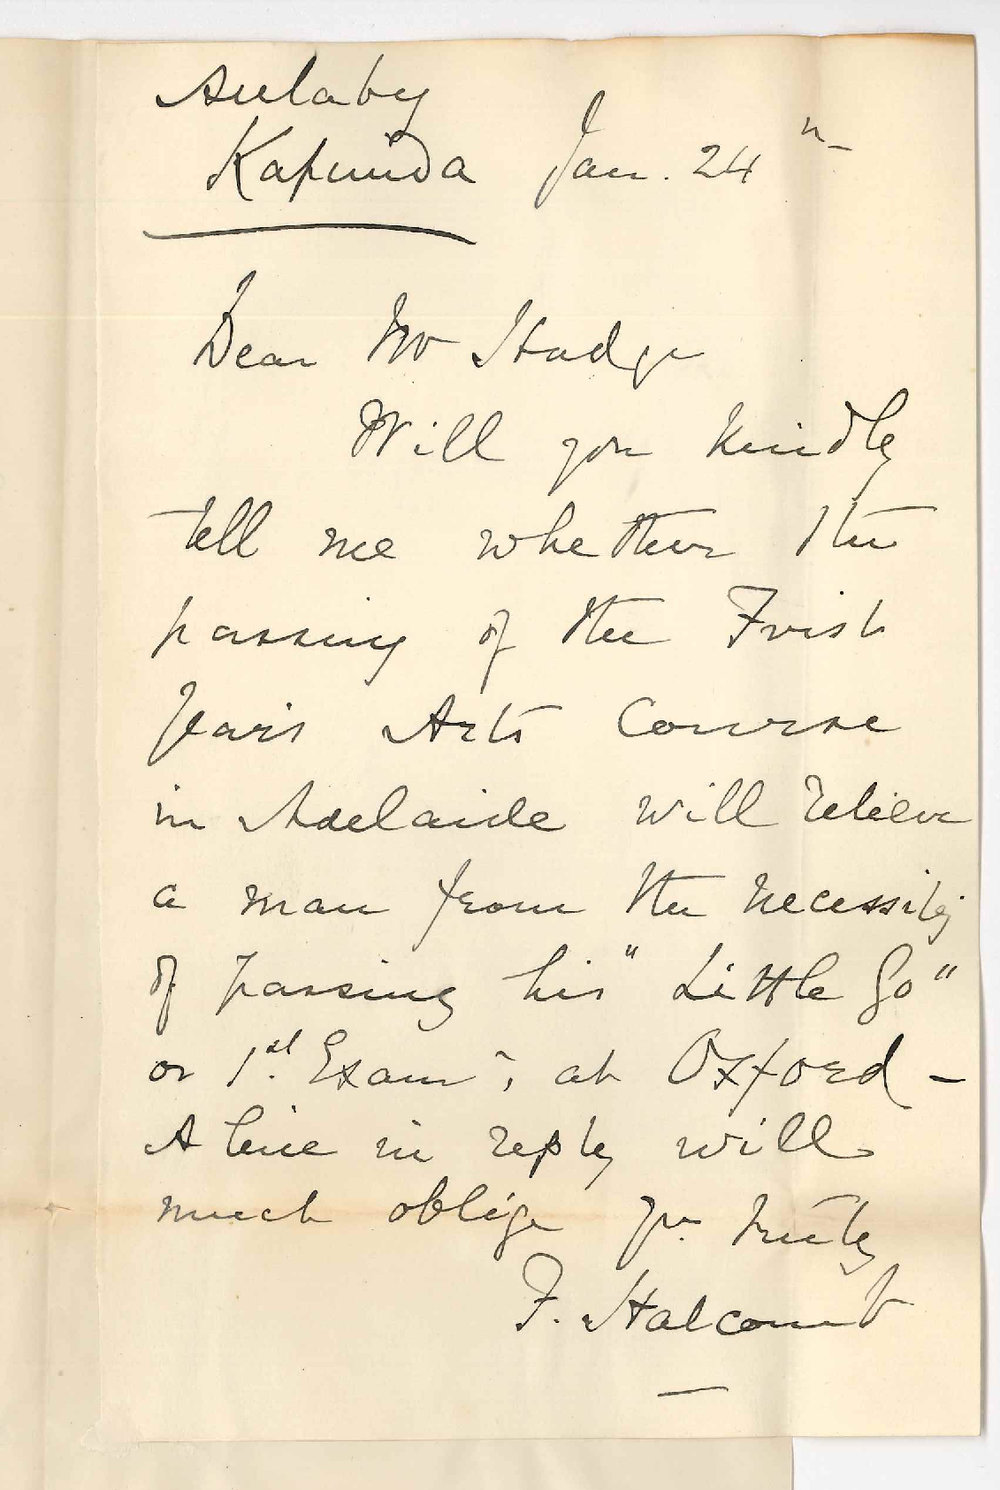 Anlaby
Kapunda Jan. 24th
Dear Mr Hodge
Will you kindly
tell me whether the
passing of the First
Years Arts Course
in Adelaide will relieve
a man from the necessity
of passing his "Little Go"
or 1st. Exam; at Oxford -
A line in reply will
much oblige yrs. truly
F. Halcomb